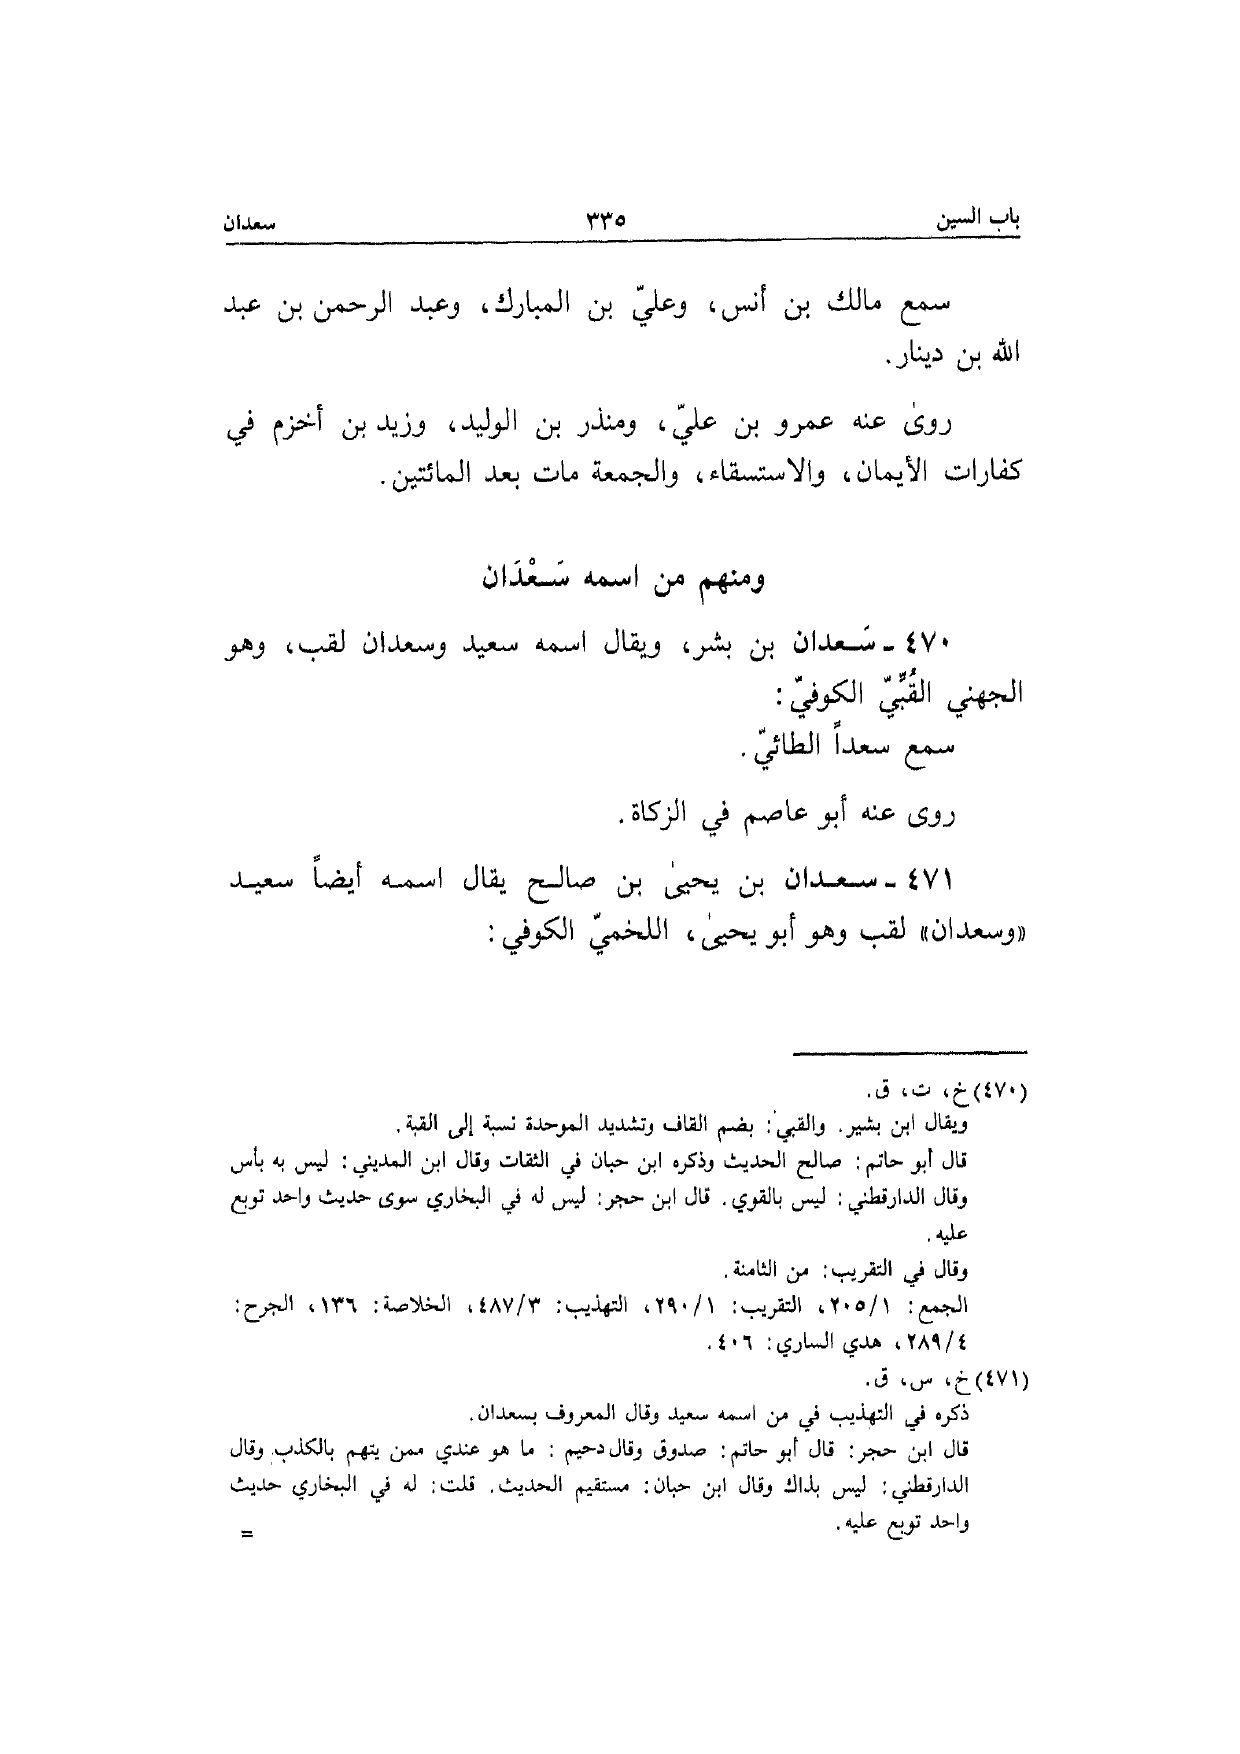 باب السين ٣٣٥ سعدان
سمع مالك بن أنس، وعليّ بن المبارك، وعبد الرحمن بن عبد
الله بن دينار.
روىٰ عنه عمرو بن عليّ، ومنذر بن الوليد، وزيد بن أخزم في
كفارات الأيمان، والاستسقاء، والجمعة مات بعد المائتين.
ومنهم من اسمه سَعْدَان
٤٧٠ ـ سَعدان بن بشر، ويقال اسمه سعيد وسعدان لقب، وهو
الجهني القُبِّيّ الكوفيّ:
سمع سعداً الطائيّ.
روى عنه أبو عاصم في الزكاة.
٤٧١ ـ سعدان بن يحيىٰ بن صالح يقال اسمه أيضاً سعيد
«وسعدان» لقب وهو أبو يحيىٰ، اللخميّ الكوفي:
(٤٧٠) خ، ت، ق.
ويقال ابن بشير. والقبي: بضم القاف وتشديد الموحدة نسبة إلى القبة.
قال أبو حاتم: صالح الحديث وذكره ابن حبان في الثقات وقال ابن المديني: ليس به بأس
وقال الدارقطني: ليس بالقوي. قال ابن حجر: ليس له في البخاري سوى حديث واحد توبع
عليه.
وقال في التقريب: من الثامنة.
الجمع: ٢٠٥/١، التقريب: ٢٩٠/١، التهذيب: ٤٨٧/٣، الخلاصة: ١٣٦، الجرح:
٢٨٩/٤، هدي الساري: ٤٠٦.
(٤٧١) خ، س، ق.
ذكره في التهذيب في من اسمه سعيد وقال المعروف بسعدان.
قال ابن حجر: قال أبو حاتم: صدوق وقال دحيم: ما هو عندي ممن يتهم بالكذب وقال
الدارقطني: ليس بذاك وقال ابن حبان: مستقيم الحديث. قلت: له في البخاري حديث
واحد توبع عليه.
=